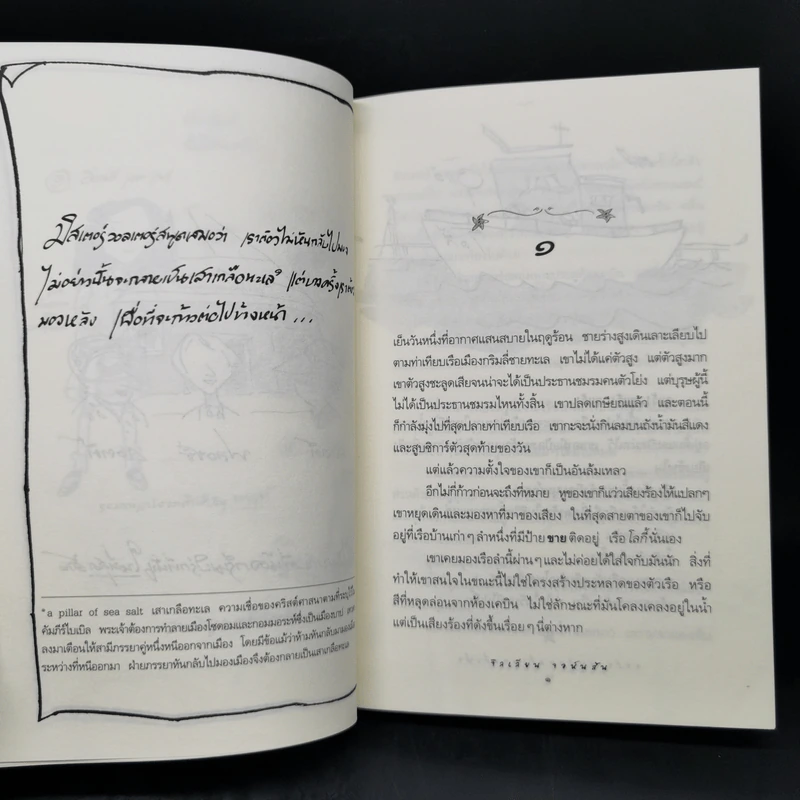 มิสเตอร์วอลเตอร์สพูดเสมอว่า เราต้องไม่หันกลับไปมอง
ไม่อย่างนั้นจะกลายเป็นเสาเกลือทะเล* แต่บางครั้งเราต้อง
มองหลัง เพื่อที่จะก้าวต่อไปข้างหน้า...
*a pillar of sea salt เสาเกลือทะเล ความเชื่อของคริสต์ศาสนาตามที่ระบุไว้ใน
คัมภีร์ไบเบิล พระเจ้าต้องการทำลายเมืองโซดอมและกอมมอระห์ซึ่งเป็นเมืองบาป
ลงมาเตือนให้สามีภรรยาคู่หนึ่งหนีออกจากเมือง โดยมีข้อแม้ว่าห้ามหันกลับมามอง
ระหว่างที่หนีออกมา ฝ่ายภรรยาหันกลับไปมองเมืองจึงต้องกลายเป็นเสาเกลือทะเล
๑
เย็นวันหนึ่งที่อากาศแสนสบายในฤดูร้อน ชายร่างสูงเดินเลาะเลียบไป
ตามท่าเทียบเรือเมืองกริมลี่ชายทะเล เขาไม่ได้แค่ตัวสูง แต่ตัวสูงมาก
เขาตัวสูงชะลูดเสียจนน่าจะได้เป็นประธานชมรมคนตัวโย่ง แต่บุรุษผู้นี้
ไม่ได้เป็นประธานชมรมไหนทั้งสิ้น เขาปลดเกษียณแล้ว และตอนนี้
ก็กำลังมุ่งไปที่สุดปลายท่าเทียบเรือ เขากะจะนั่งกินลมบนถังน้ำมันสีแดง
และสูบซิการ์ตัวสุดท้ายของวัน
แต่แล้วความตั้งใจของเขาก็เป็นอันล้มเหลว
อีกไม่กี่ก้าวก่อนจะถึงที่หมาย หูของเขาก็แว่วเสียงร้องไห้แปลกๆ
เขาหยุดเดินและมองหาที่มาของเสียง ในที่สุดสายตาของเขาก็ไปจับ
อยู่ที่เรือบ้านเก่าๆ ลำหนึ่งที่มีป้าย ขาย ติดอยู่ เรือ โลกี้ นั่นเอง
เขาเคยมองเรือลำนี้ผ่านๆ และไม่ค่อยได้ใส่ใจกับมันนัก สิ่งที่
ทำให้เขาสนใจในขณะนี้ไม่ใช่โครงสร้างประหลาดของตัวเรือ หรือ
สีที่หลุดล่อนจากห้องเคบิน ไม่ใช่ลักษณะที่มันโคลงเคลงอยู่ในน้ำ
แต่เป็นเสียงร้องที่ดังขึ้นเรื่อยๆ นี่ต่างหาก
ซิลเรียน จอห์นสัน